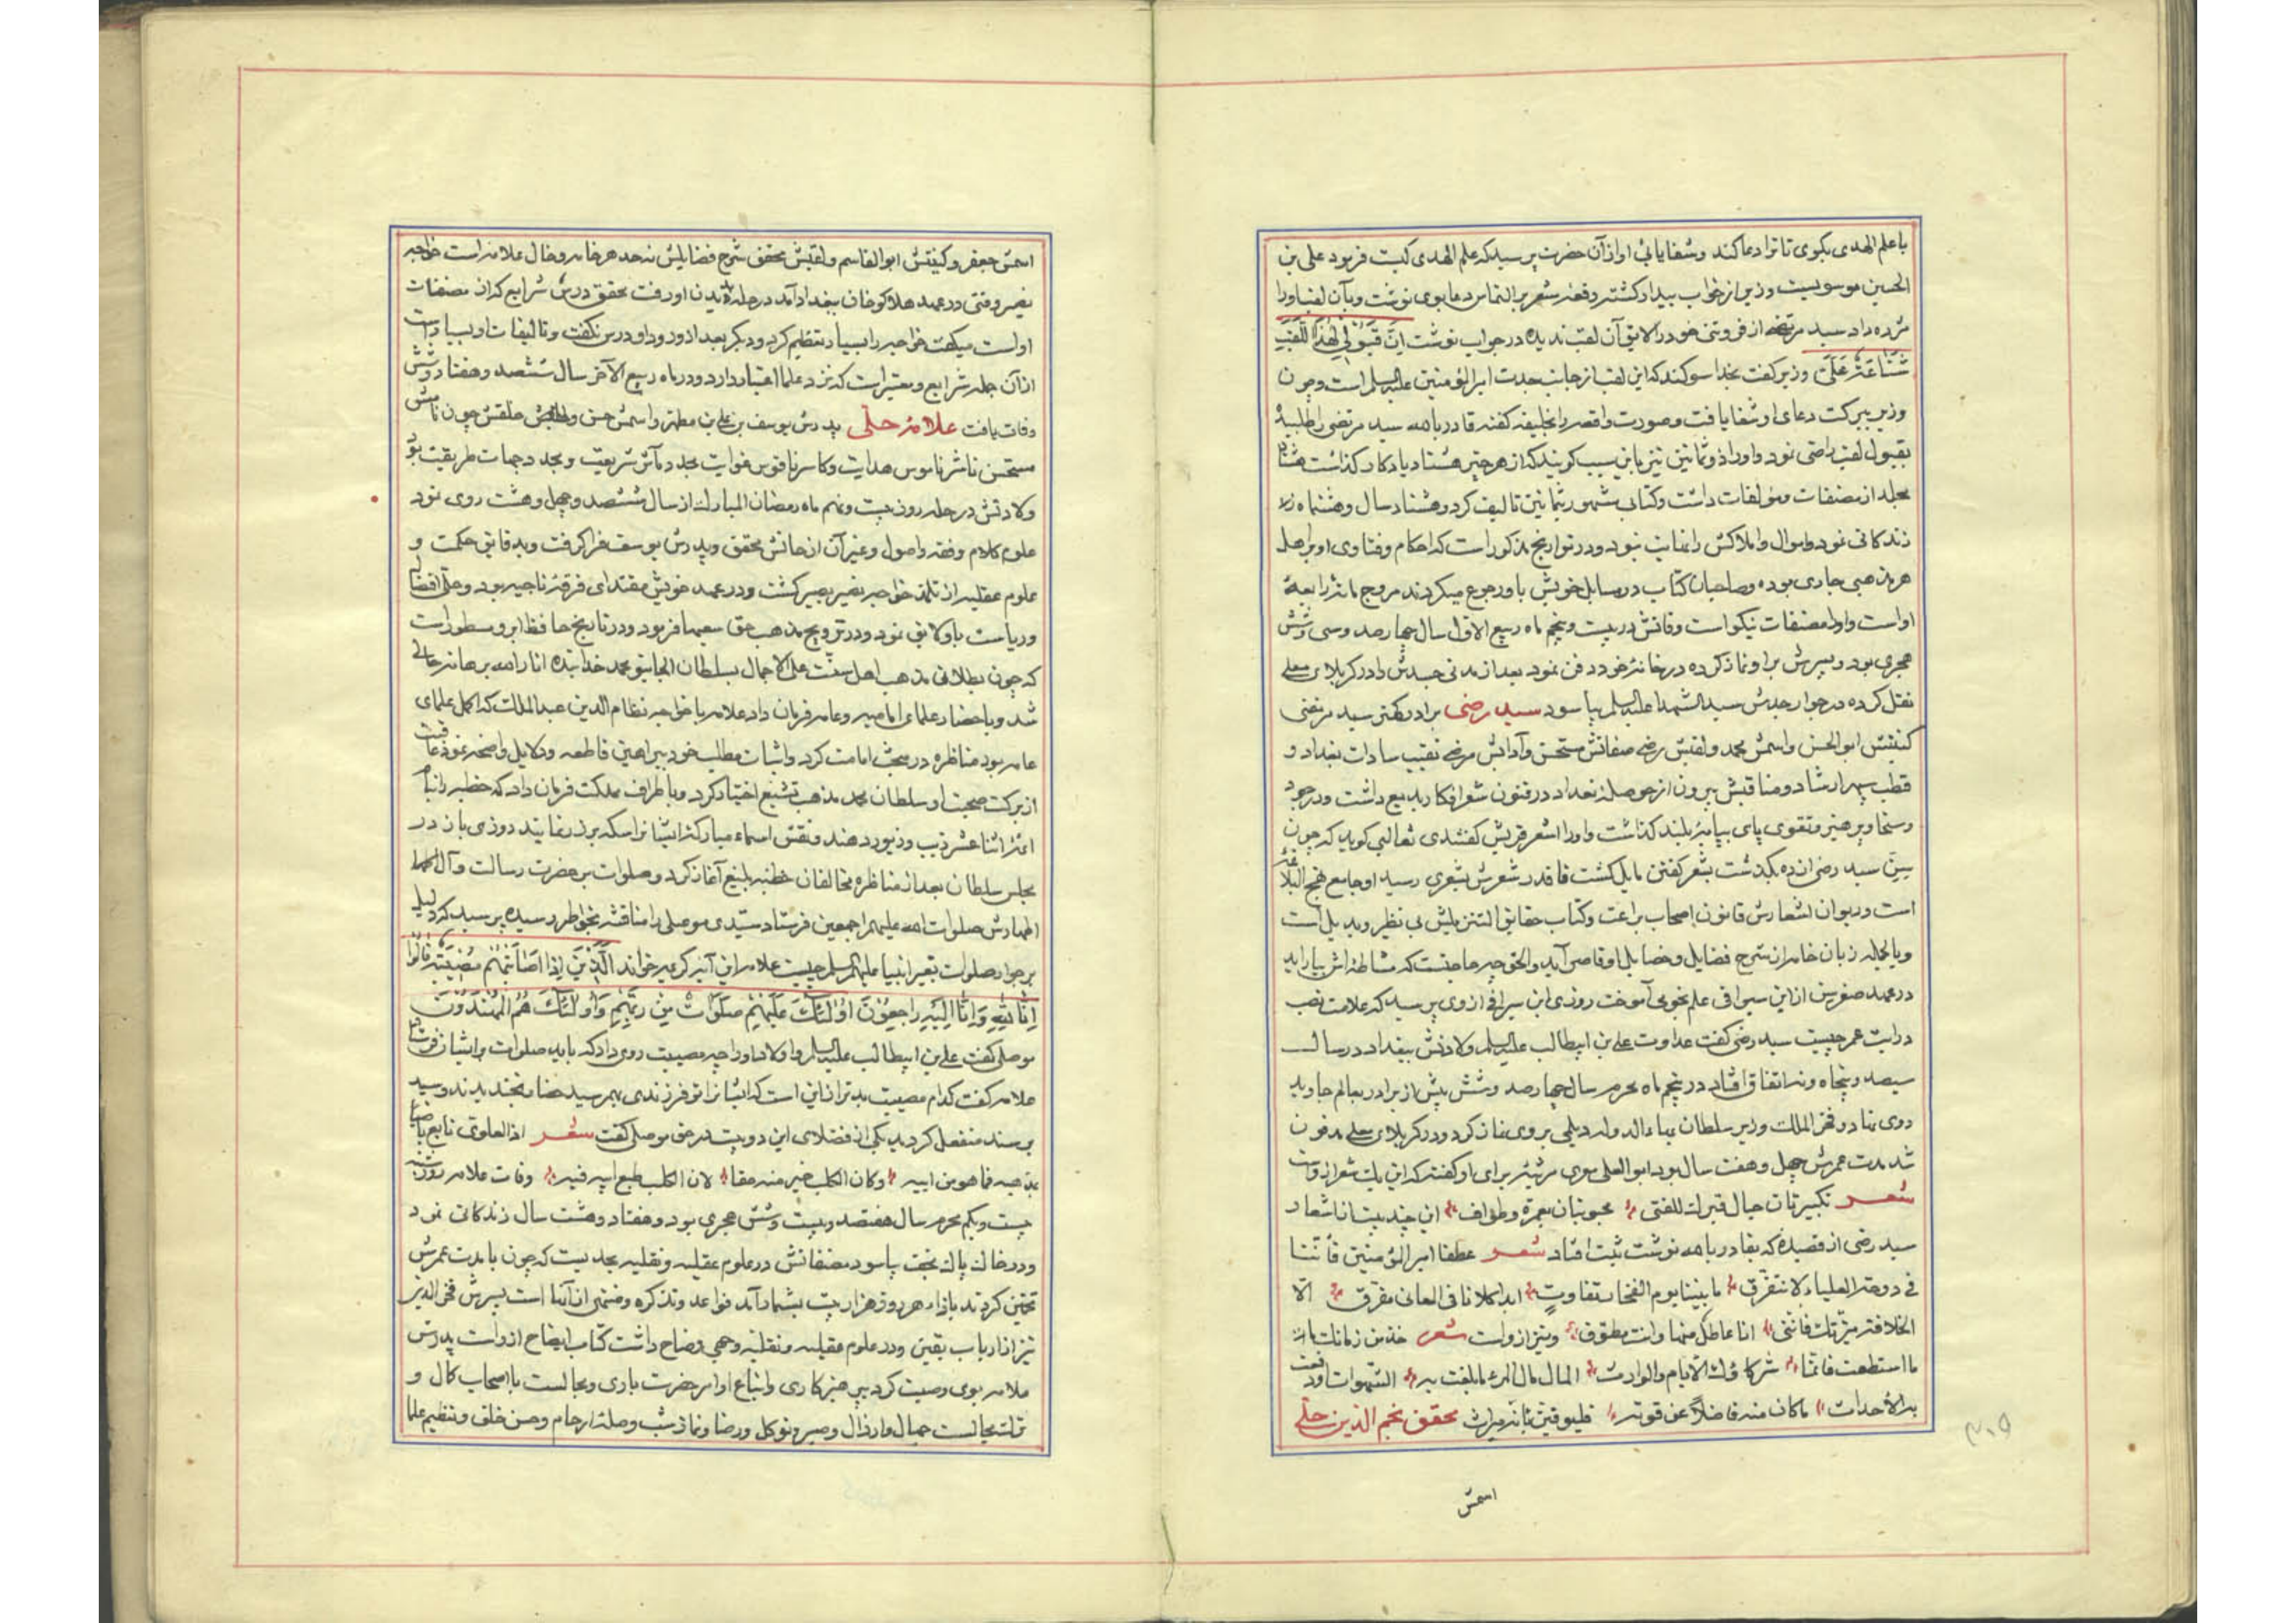 با علم الهدی بکوی تا ترا دعا کند و شفا یابی او از آن حضرت پرسید که علم الهدی کیست فرمود علی بن
الحسین موسویست وزیر از خواب بیدار کشته رقعه مشعر بر التماس دعا بوی نوشت و بآن لقب او را
مژده داد سید مرتضی از فروتنی خود را لایق آن لقب ندیده در جواب نوشت اِنَّ قَبُولی لِهٰذَا اللَّقَبِ
شَنَاعَةٌ عَلَیَّ وزیر کفت بخدا سوکند که این لقب از جانب جدت امیرالمؤمنین علیه السلام است و چون
وزیر ببرکت دعای او شفا یافت و صورت واقعه را بخلیفه کفته قادر بالله سید مرتضی را طلبیده
بقبول لقب راضی نمود و او را ذوثمانین نیز باین سبب کویند که از هر چیز هشتاد یادکار کذاشت هشتاد
مجلد از مصنفات و مؤلفات داشت و کتابی مشهور بثمانین تالیف کرد و هشتاد سال و هشت ماه
زندکانی نمود و اموال و املاکش را نهایت نبود و در تواریخ مذکور است که احکام و فتاوی او بر اهل
هر مذهبی جاری بوده و صاحبان کتاب در مسایل خویش باو رجوع میکردند مروج مائه رابعهٔ
او است و او را مصنفات نیکو است وفاتش در بیست و پنجم ماه ربیع الاول سال چهارصد و سی و شش
هجری بود و پسرش بر او نماز کرده در خانهٔ خود دفن نمود بعد از مدتی جسدش را در کربلای معلی
نقل کرده در جوار جدش سید الشهدا علیه السلام بیاسود سید رضی برادر کهتر سید مرتضی
کنیتش ابوالحسن و اسمش محمد و لقبش رضی صفاتش مستحسن و آدابش مرضی نقیب سادات بغداد و
قطب سپهر ارشاد و مناقبش بیرون از حوصلهٔ تعداد در فنون شعر افکار بدیع داشت و در جود
و سخا و پرهیز و تقوی پای بپایهٔ بلند کذاشت و او را اشعر قریش کفتندی ثعالبی کوید که چون
سِنّ سید رضی از ده بکذشت بشعر کفتن مایل کشت فاقدر شعرش بشعری رسید او جامع نهج البلاغه
است و دیوان اشعارش قانون اصحاب براعت و کتاب حقایق التنزیلش بی نظیر و بدیل است
و بالجمله زبان خامه از شرح فضایل و خصایل او قاصر آید و الحق چه حاجتست که مشاطه اش بیاراید
در عهد صغر سن از ابن سیرافی علم نحو می آموخت روزی ابن سیرافی از وی پرسید که علامت نصب
در رایت عمر چیست سید رضی کفت عداوت علی بن ابیطالب علیه السلام ولادتش ببغداد در سال
سیصد و پنجاه و نه اتفاق افتاد در پنجم ماه محرم سال چهارصد و شش پیش از برادر بعالم جاوید
روی نهاد و فخر الملک وزیر سلطان بهاء الدوله دیلمی بر وی نماز کرد و در کربلای معلی مدفون
شد مدت عمرش چهل و هفت سال بود ابوالعلی معری مرثیه برای او کفته که این یک شعر از وست
شعر تکبیرتان حیال قبرک للفتی محبوبتان بعمرة وطواف این چند بیت از اشعار
سید رضی از قصیدهٔ که بقادر بالله نوشت ثبت افتاد شعر عطفا امیر المؤمنین فانّنا
فی دوحة العلیاء لا نتفرّق ما بیننا یوم الفخار تفاوت ابدا کلانا فی المعالی مفرق الا
الخلافة میزتک فاننی انا عاطل منها وانت مطوّق و نیز از وست شعر خذ من زمانک
ما استطعت فانّما شرکاؤک الایّام والوارث المال مال المرء ما بلغت به الشهوات او دفعت
به الأحداث ما کان منه فاضلاً عن قوته فلیوقنن بانه میراث محقق نجم الدین حلّی
اسمش
اسمش جعفر و کنیتش ابوالقاسم و لقبش محقق شرح فضایلش نه حد هر خامه و خال علامه است خواجه
نصیر وقتی در عهد هلاکوخان ببغداد آمد در حله بدیدن او رفت محقق درس شرایع که از مصنفات
او است میکفت خواجه را بسیار تعظیم کرد و دیکر بعد از ورود او درس نکفت و تالیفات او بسیار است
از آن جمله شرایع و معتبر است که نزد علما اعتبار دارد و در ماه ربیع الآخر سال ششصد و هفتاد و شش
وفات یافت علامهٔ حلّی پدرش یوسف بن علی بن مطهر و اسمش حسن و خلقش چون نامش
مستحسن ناشر ناموس هدایت و کاسر ناقوس غوایت مجدد مآثر شریعت و محدد جهات طریقت بود
ولادتش در حله روز بیست و نهم ماه رمضان المبارک از سال ششصد و چهل و هشت روی نمود
علوم کلام و فقه و اصول و غیر آن از خالش محقق و پدرش یوسف فرا کرفت و بدقایق حکمت و
علوم عقلیه از تلمذ خواجه نصیر بصیر کشت و در عهد خویش مقتدای فرقهٔ ناجیه بود و حلی افضال
و ریاست باو لایق نمود و در ترویج مذهب حق سعیها فرمود و در تاریخ حافظ ابرو مسطور است
که چون بطلان مذهب اهل سنت علی الاجمال بسلطان الجایتو محمد خدابنده انار الله برهانه حالی
شد و باحضار علمای امامیه و عامه فرمان داد علامه با خواجه نظام الدین عبدالملک که اکمل علمای
عامه بود مناظره در مبحث امامت کرد و اثبات مطالب خود ببراهین قاطعه و دلایل واضحه نمود عاقبت
از برکت صحبت او سلطان محمد مذهب تشیع اختیار کرد و باطراف مملکت فرمان داد که خطبه را بنام
ائمهٔ اثنا عشر زیب و زیور دهند و نقش اسماء مبارکهٔ ایشانرا سکه بر زر نمایند روزی باز در
مجلس سلطان بعد از مناظره مخالفان خطبهٔ بلیغ آغاز کرد و صلوات بر حضرت رسالت و آل
اطهارش صلوات الله علیهم اجمعین فرستاد سیّدی موصلی را مناقشه بخواطر رسیده پرسید که دلیل
بر جواز صلوات بغیر انبیا علیهم السلام چیست علامه این آیهٔ کریمه خواند الَّذینَ اِذا اَصابَتْهُمْ مُصیبَةٌ قالُوا
اِنّا لِلّهِ وَاِنّا اِلَیْهِ راجِعُونَ اُولئِکَ عَلَیْهِمْ صَلَواتٌ مِنْ رَبِّهِمْ وَاُولئِکَ هُمُ الْمُهْتَدُونَ
موصلی کفت علی بن ابیطالب علیه السلام و اولاد او را چه مصیبت روی داد که باید صلوات بر ایشان فرستاد
علامه کفت کدام مصیبت بدتر از این است که ایشانرا تو فرزندی بهم رسید حضار بخندیدند و سید
بی سند منفعل کردید یکی از فضلای این دو بیت در حق موصلی کفت شعر اذا العلوی تابع ناصبیا
بمذهبه فما هو من ابیه وکان الکلب خیر منه حقا لان الکلب طبع ابیه فیه وفات علامه روز
بیست و یکم محرم سال هفتصد و بیست و شش هجری بود و هفتاد و هشت سال زندکانی نمود
و در خاک پاک نجف بیاسود مصنفاتش در علوم عقلیه و نقلیه بحدیست که چون با مدت عمرش
تخمین کردند بازاء هر روز هزار بیت بشمار آمد قواعد و تذکره و منتهی از آنها است پسرش فخر الدین
نیز از ارباب یقین و در علوم عقلیه و نقلیه وحی وضاح داشت کتاب ایضاح از وست پدرش
علامه بوی وصیت کرد بپرهیزکاری و اتباع اوامر حضرت باری و مجالست با اصحاب کمال و
ترک مجالست جهال و ارذال و صبر و توکل و رضا و نماز شب و صلهٔ ارحام و حسن خلق و تعظیم علما